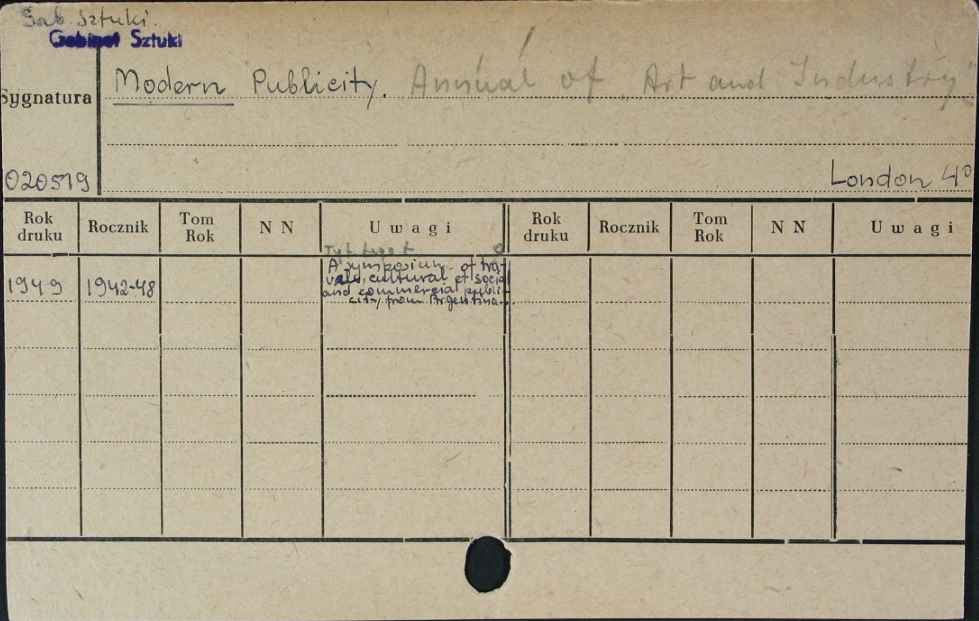 Gab. Sztuki.
Gabinet Sztuki
Modern Publicity. Annual of „Art and Industry”
Sygnatura
020519
London 4°
Rok druku Rocznik Tom Rok N N U w a g i Rok druku Rocznik Tom Rok N N U w a g i
1949 1942-48
A symposium of tra-
vels, cultural et social
and commercial publi-
city from Argentina.